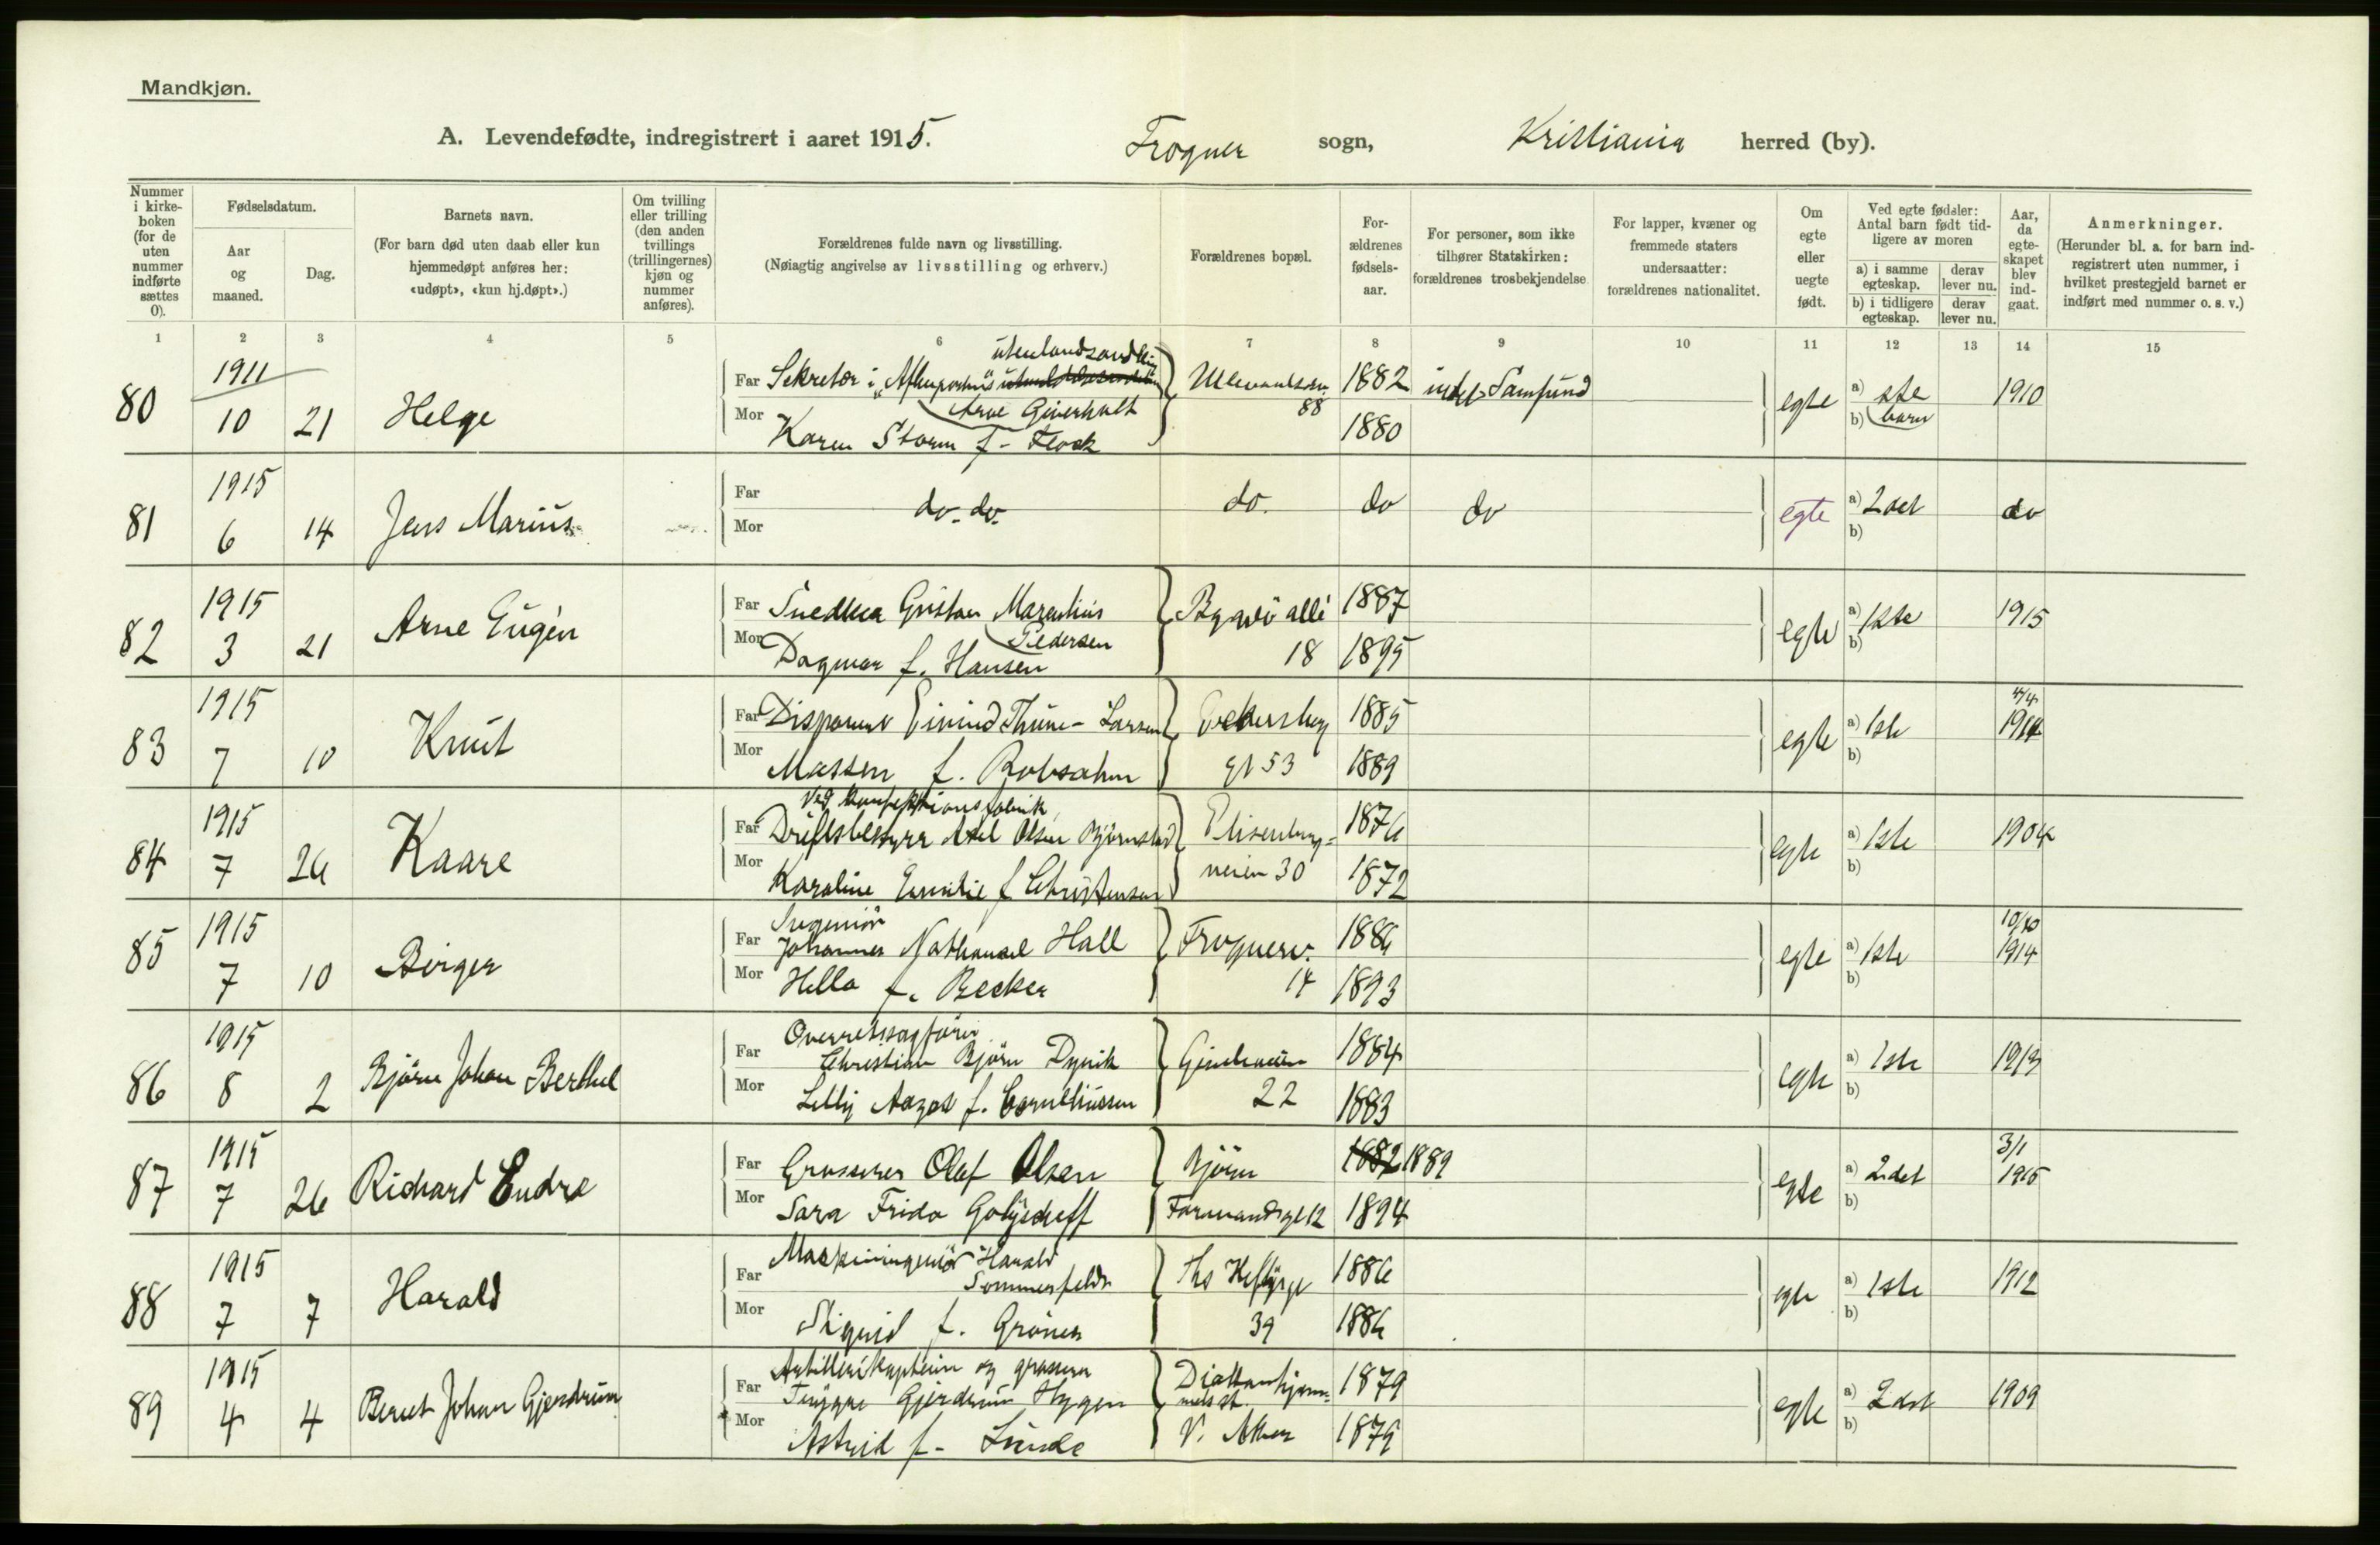 Mandkjøn.
A. Levendefødte, indregistrert i aaret 1915. Frogner sogn, Kristiania herred (by).
Nummer i kirke-boken (for de uten nummer indførte sættes 0).
Fødselsdatum.
Aar og maaned.
Dag.
Barnets navn.
(For barn død uten daab eller kun hjemmedøpt anføres her: «udøpt», «kun hj.døpt».)
Om tvilling eller trilling (den anden tvillings (trillingernes) kjøn og nummer anføres).
Forældrenes fulde navn og livsstilling.
(Nøiagtig angivelse av livsstilling og erhverv.)
Forældrenes bopæl.
For-ældrenes fødsels-aar.
For personer, som ikke tilhører Statskirken: forældrenes trosbekjendelse
For lapper, kvæner og fremmede staters undersaatter: forældrenes nationalitet.
Om egte eller uegte født.
Ved egte fødsler: Antal barn født tid-ligere av moren
a) i samme egteskap.
derav lever nu.
b) i tidligere egteskap.
derav lever nu.
Aar, da egte-skapet blev ind-gaat.
Anmerkninger.
(Herunder bl. a. for barn ind-registrert uten nummer, i hvilket prestegjeld barnet er indført med nummer o. s. v.)
1 2 3 4 5 6 7 8 9 10 11 12 13 14 15
80 1911 10 21 Helge
Far Sekretær i "Aftenpostens
Mor Karen Storm f.
88 1882 1880 Samfund egte a) 1ste b) barn 1910
81 1915 6 14 Jens Marius
Far Mor do. do. do. do do egte a) 2det b) do
82 1915 3 21 Arne Eugén
Far Snedker Gustav Marentius Pedersen
Mor Dagmar f. Hansen
Bygdø allé 18 1887 1895 egte a) 1ste b) 1915
83 1915 7 10 Knut
Far Disponent Eivind Thune-Larsen
Mor Massen f. Robsahm
Eckersberg gt 53 1885 1889 egte a) 1ste b) 4/4 1914
84 1915 7 26 Kaare
Ved konfektionsfabrik
Far Driftsbestyrer Axel Olsen Bjørnstad
Mor Karoline Emilie f Christensen
Elisenberg-veien 30 1876 1872 egte a) 1ste b) 1904
85 1915 7 10 Birger
Ingeniør
Far Johannes Nathanael Hall
Mor Hella f. Becker
Frognerv. 14 1886 1893 egte a) 1ste b) 10/10 1914
86 1915 8 2 Bjørn Johan Berthel
Overretssagfører
Far Christian Bjørn Dyvik
Mor Lilly Aagot f. Corneliussen
22 1884 1883 egte a) 1ste b) 1913
87 1915 7 26 Richard Endre
Far Grosserer Olaf Olsen
Mor Sara Frida Golijscheff
Bjørn Farmandsgt 12 1882 1889 1894 egte a) 2det b) 3/1 1915
88 1915 7 7 Harald
Far Maskiningeniør Harald Sommerfeldt
Mor Sigrid f. Grøner
Ths Heftyes gt 39 1886 1886 egte a) 1ste b) 1912
89 1915 4 4 Bernt Johan Gjerdrum
Artillerikaptein og grosserer
Far Trygve Gjerdrum Hygen
Mor Astrid f. Linde
V. Aker 1879 1879 egte a) 2det b) 1909